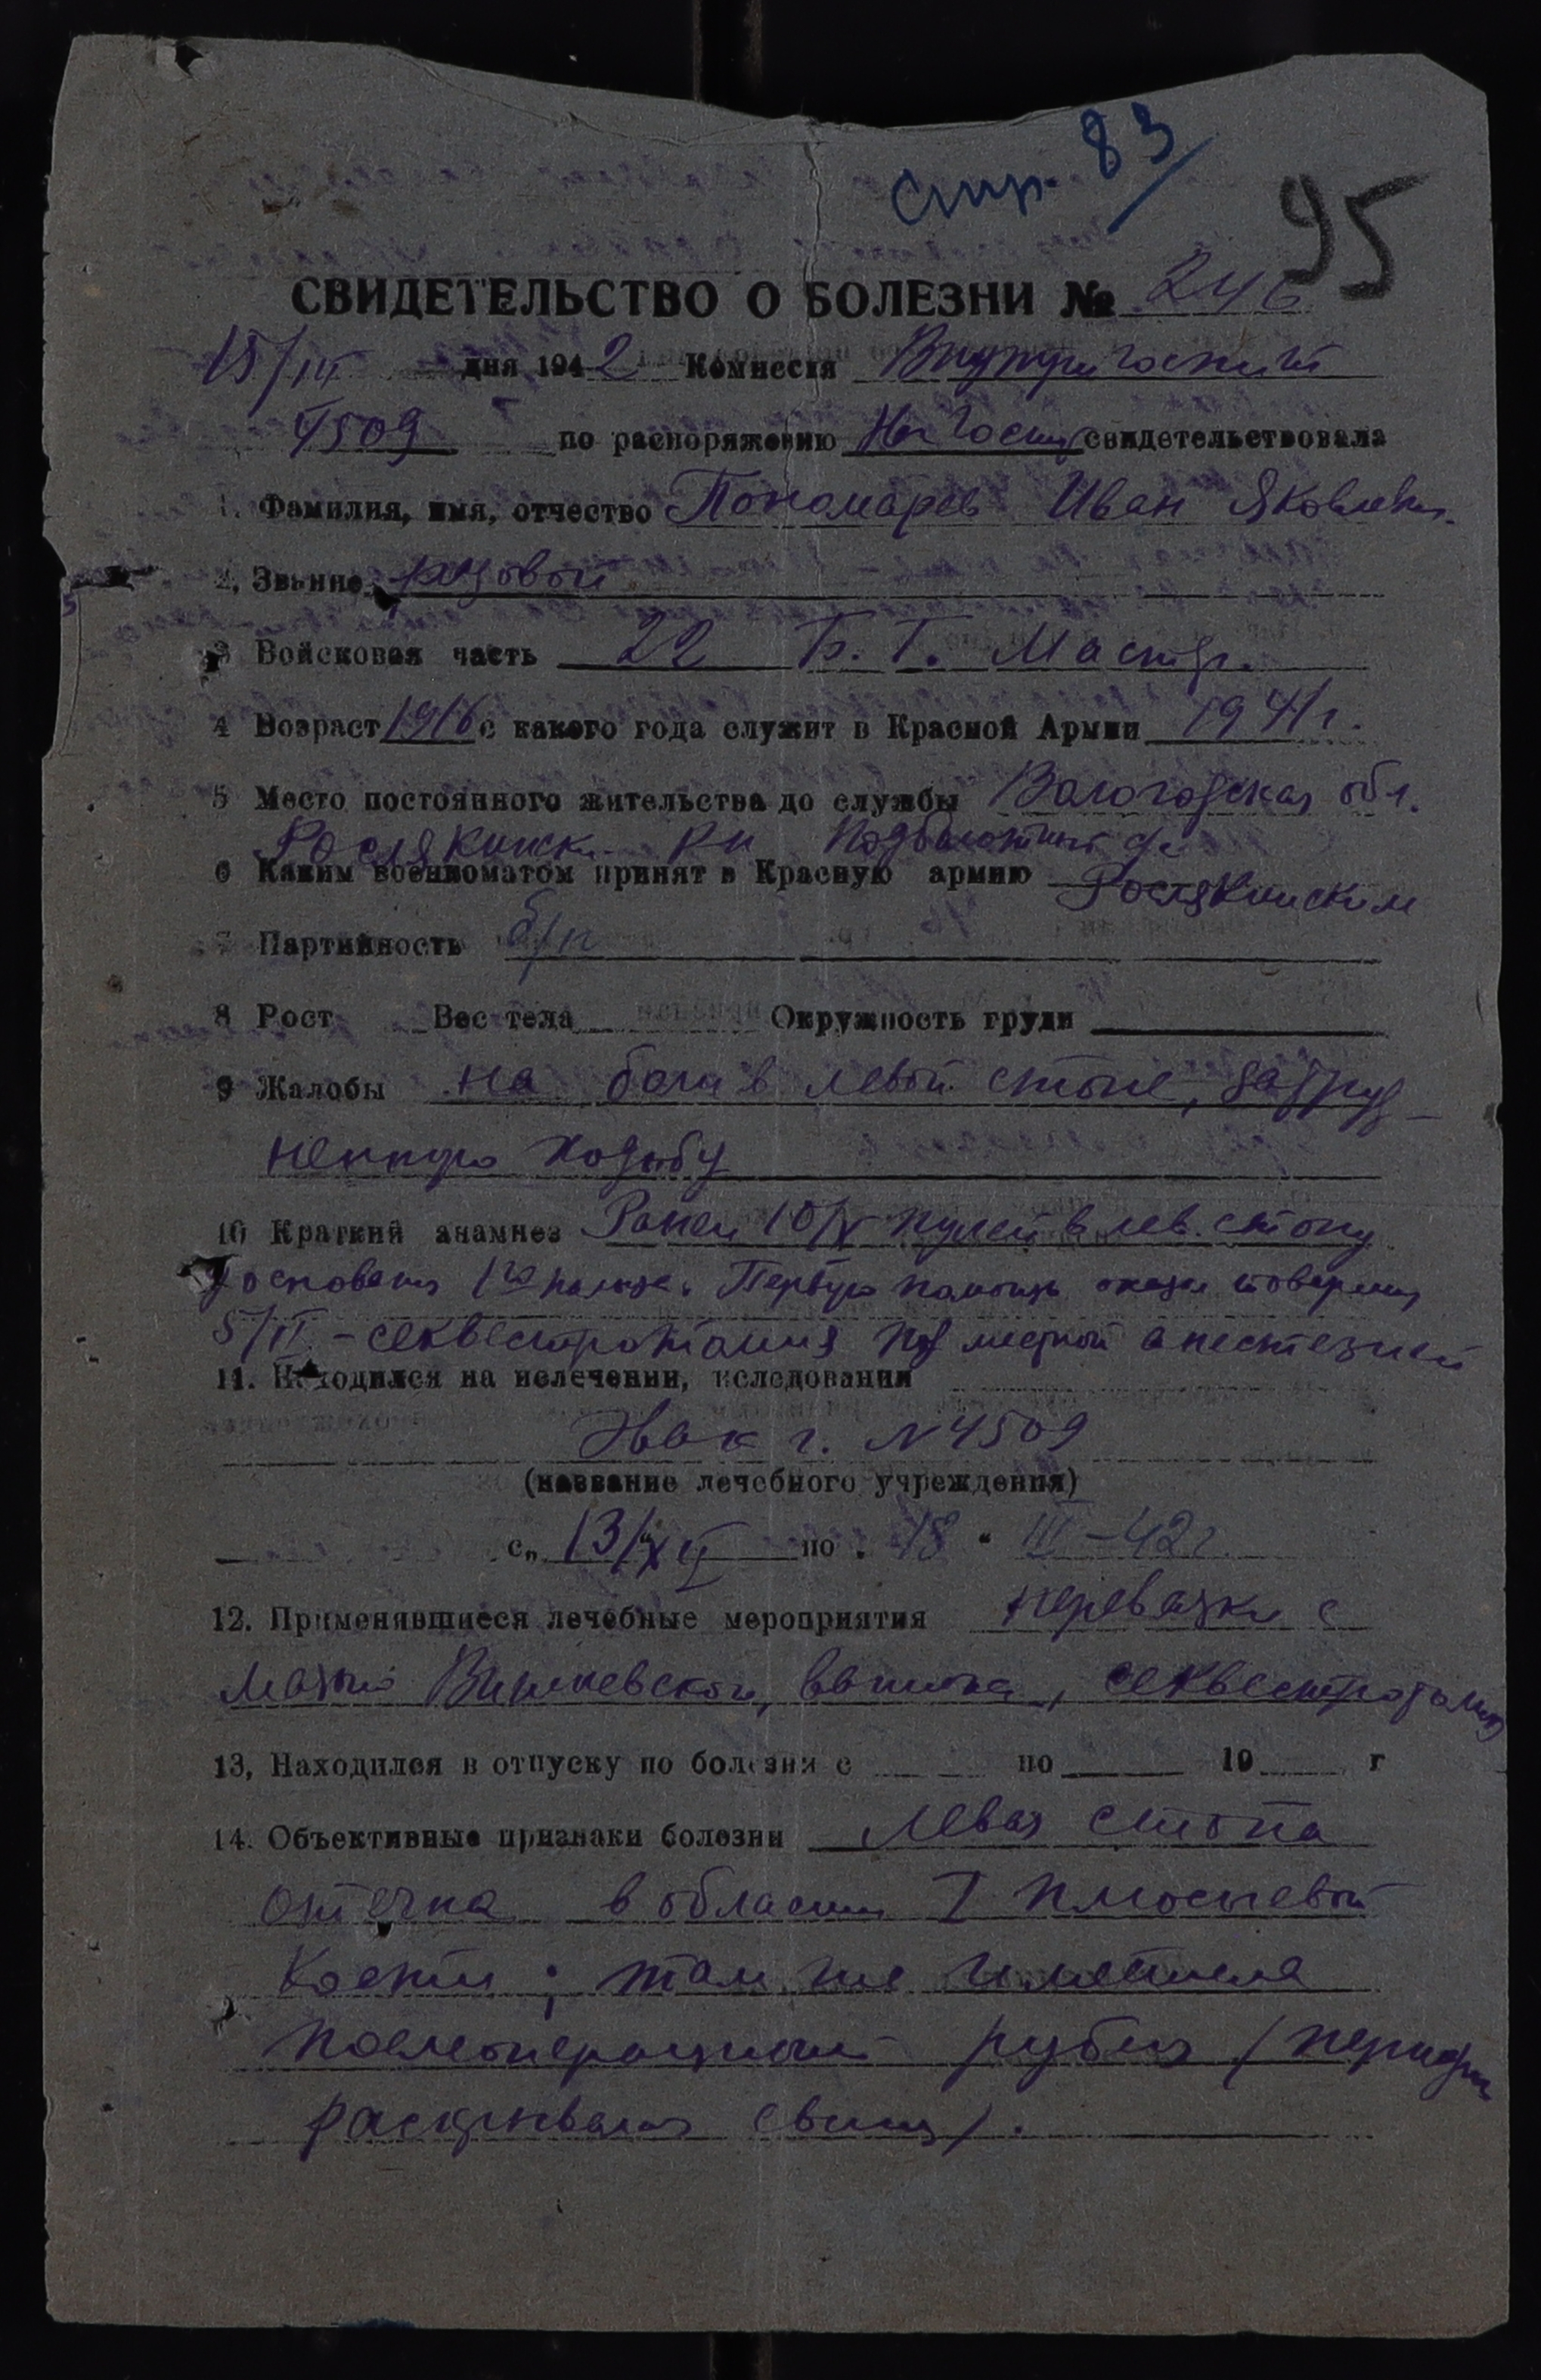 стр. 83/
95
СВИДЕТЕЛЬСТВО О БОЛЕЗНИ № 246
15/III дня 1942 Комиссия Внутригоспит
4509 по распоряжению Нач Госпит свидетельствовала
1. Фамилия, имя, отчество Пономарев Иван Яковлевич
2. Звание рядовой
3 Войсковая часть 22
4 Возраст 1916 с какого года служит в Красной Армии 1941 г.
5 Место постоянного жительства до службы Вологодская обл.
Рослякинск. рн
6 Каким военкоматом принят в Красную армию Рослякинским
7 Партийность б/п
8 Рост Вес тела Окружность груди
9 Жалобы на боли в левой стопе, затруд-
ненную ходьбу
10 Краткий анамнез Ранен 10/X пулей в лев. стопу
у основания 1го пальца. Первую помощь оказал товарищ
5/II - секвестротомия под местной анестезией
11. Находился на излечении, иследовании
Эвак г. N 4509
(название лечебного учреждения)
с „13/XII по „18“ III-42 г.
12. Применявшиеся лечебные мероприятия перевязки с
мазью Вишневского, ванны, секвестротомия
13, Находился в отпуску по болезни с по 19 г
14. Объективные признаки болезни Левая стопа
отечна в области I плюсневой
кости; там же имеется
послеоперационный рубец (периодич
раскрывался свищ).